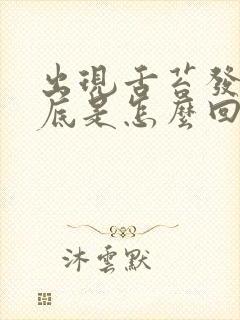 出現舌苔發
底是怎麼回
沐雲默